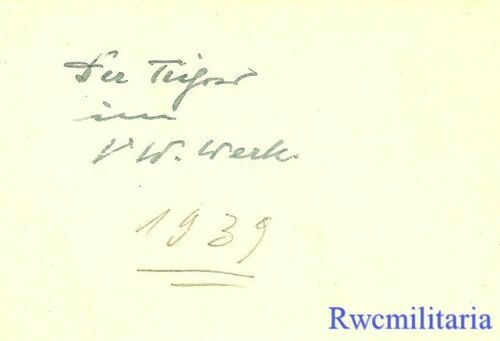 Der Führer
im
VW. Werk.
1939
Rwcmilitaria